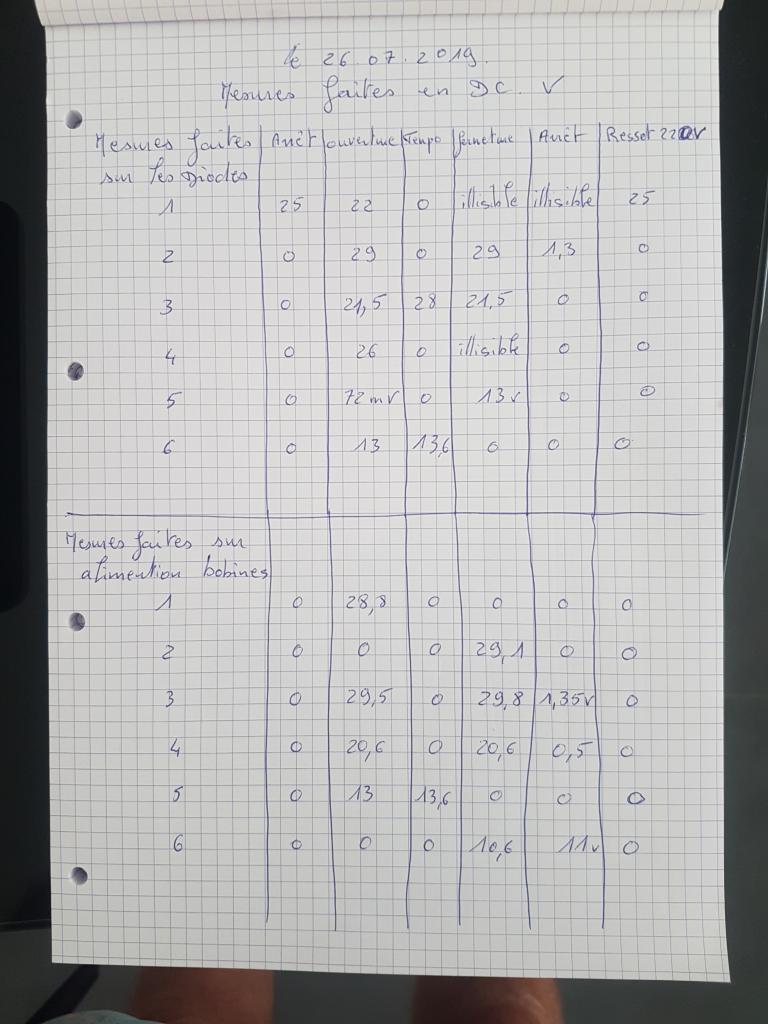 le 26.07.2019.
Mesures faites en DC. V
Mesures faites Arrêt ouverture Tempo fermeture Arrêt Resset 220v
sur les Diodes
1 25 22 0 illisible illisible 25
2 0 29 0 29 1,3 0
3 0 21,5 28 21,5 0 0
4 0 26 0 illisible 0 0
5 0 72mv 0 13v 0 0
6 0 13 13,6 0 0 0
Mesures faites sur
alimention bobines
1 0 28,8 0 0 0 0
2 0 0 0 29,1 0 0
3 0 29,5 0 29,8 1,35v 0
4 0 20,6 0 20,6 0,5 0
5 0 13 13,6 0 0 0
6 0 0 0 10,6 11v 0